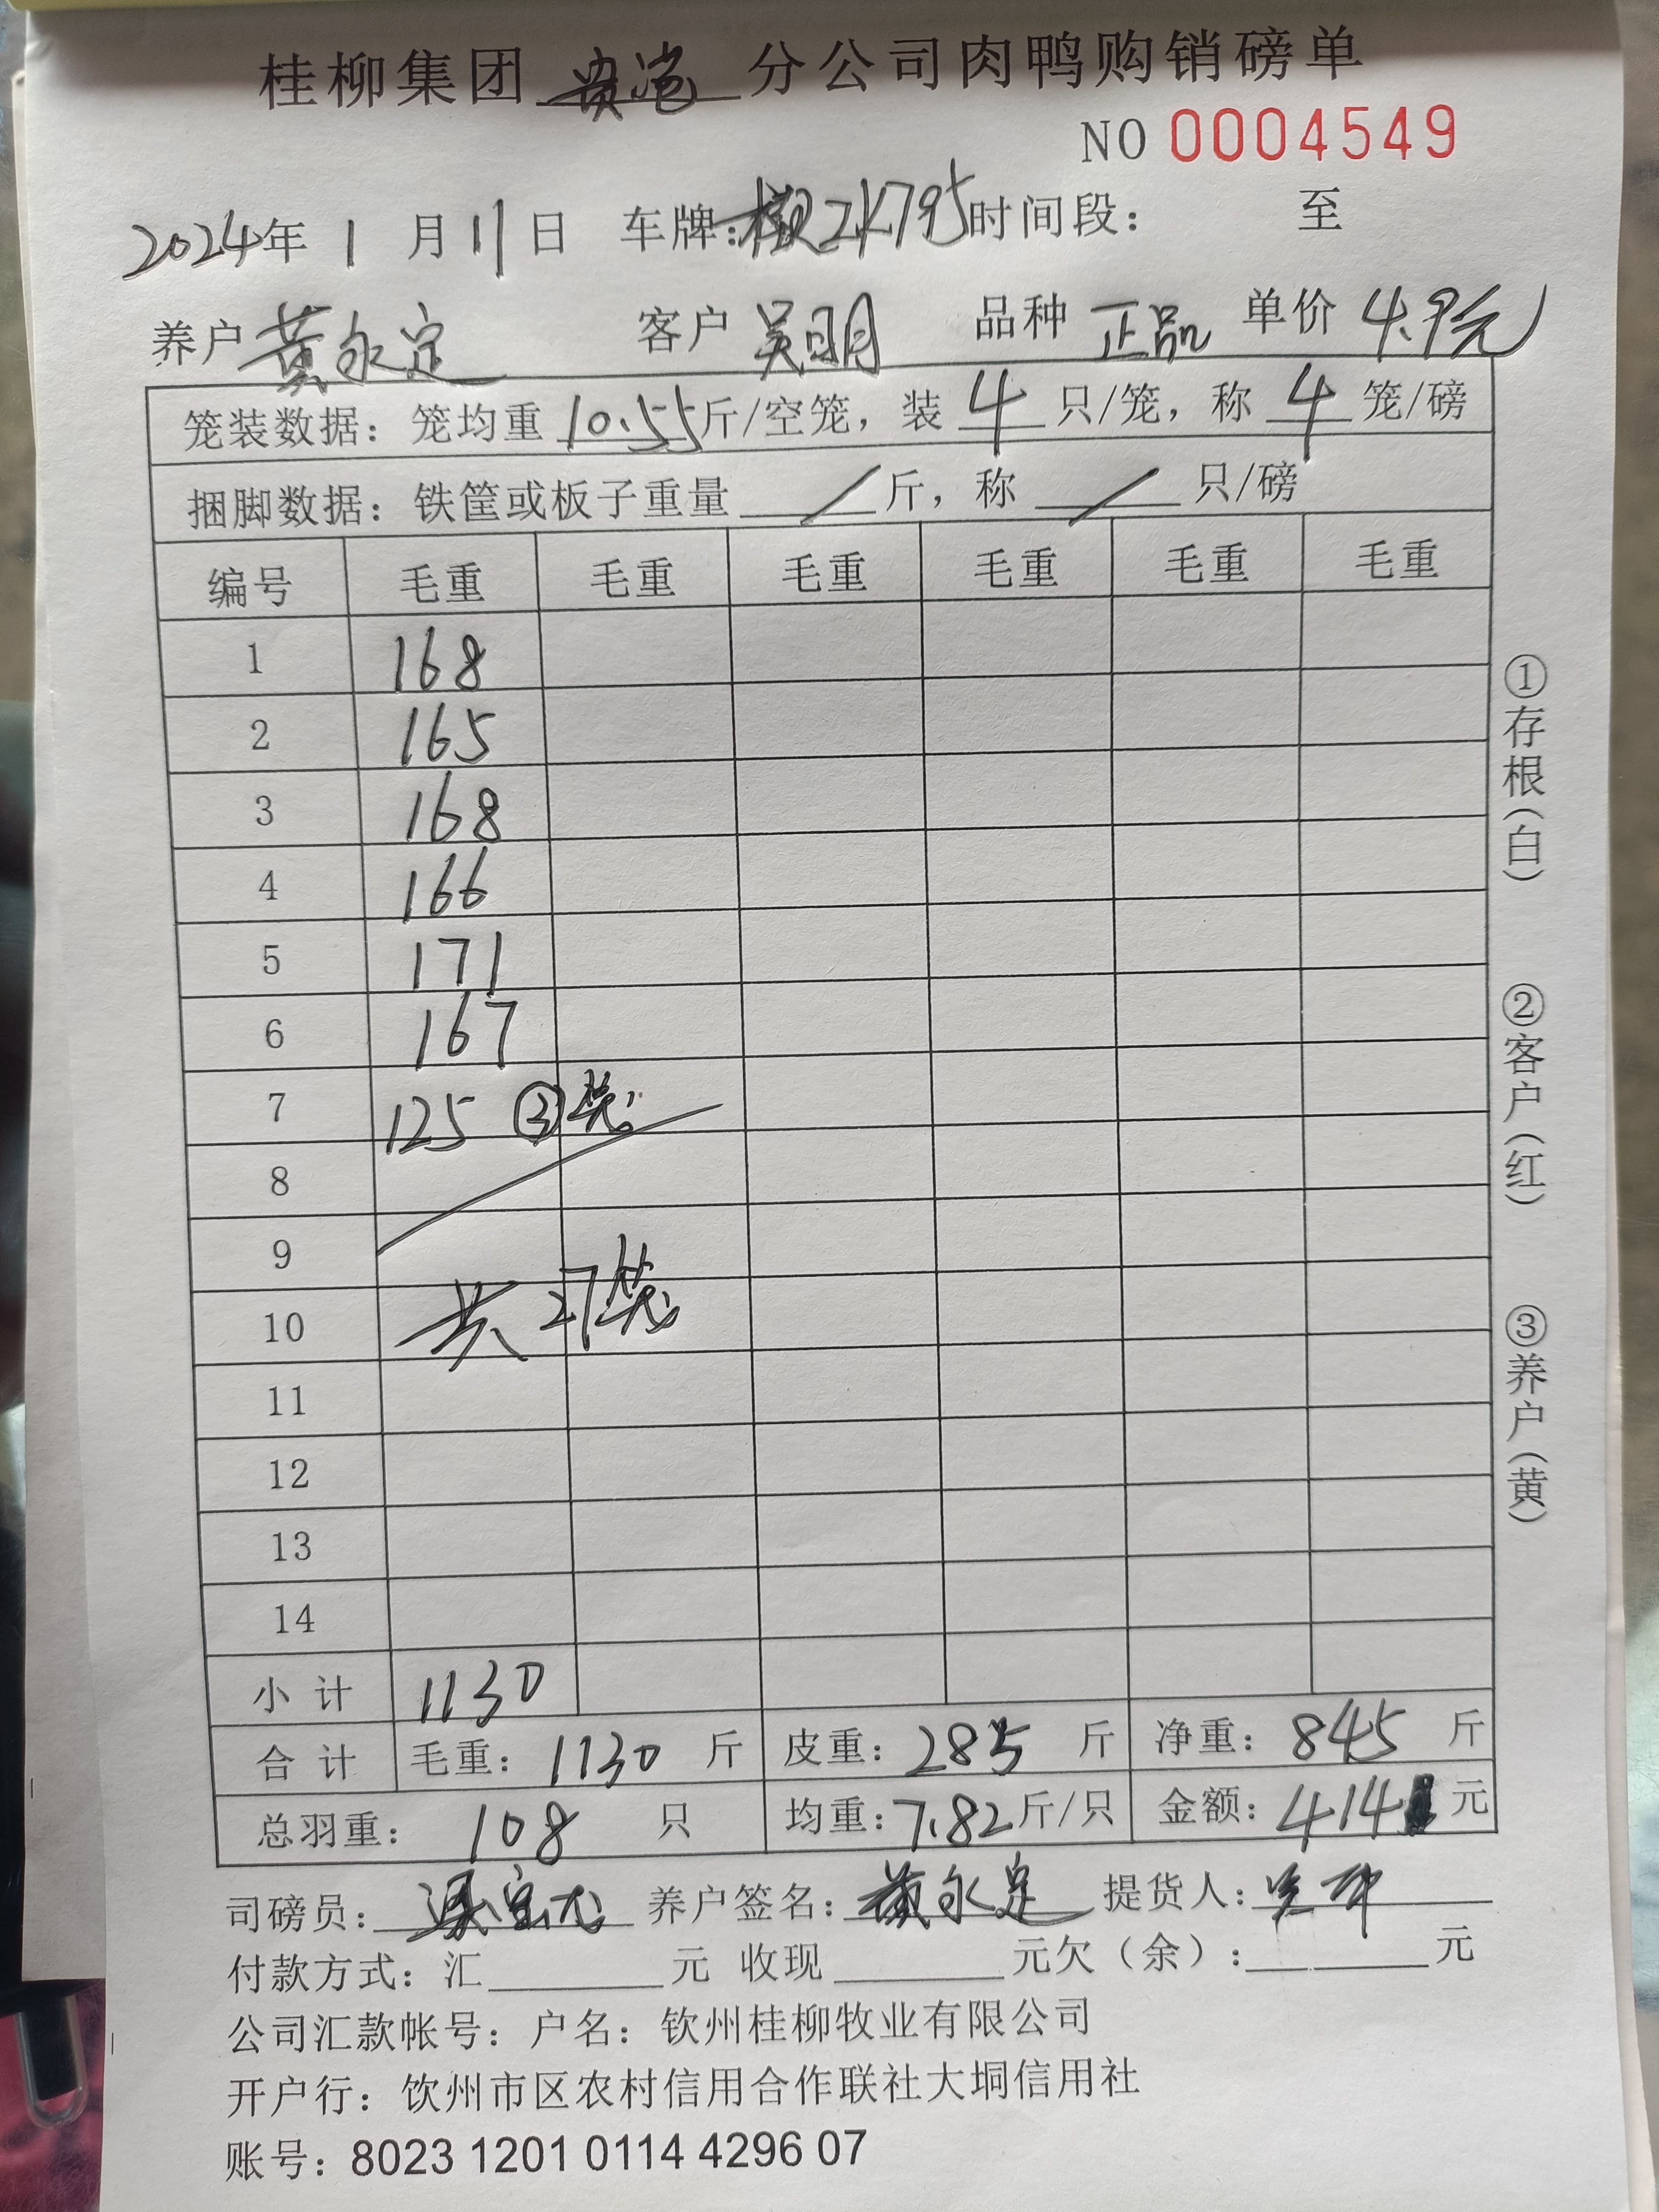 桂柳集团 贵港 分公司肉鸭购销磅单
NO 0004549
2024年 1 月 11 日 车牌: 2K795 时间段: 至
养户 黄永定 客户 吴明 品种 正品 单价 4.9元
笼装数据: 笼均重 10.55 斤/空笼, 装 4 只/笼, 称 4 笼/磅
捆脚数据: 铁筐或板子重量 / 斤, 称 / 只/磅
编号 毛重 毛重 毛重 毛重 毛重 毛重
1 168
2 165
3 168
4 166
5 171
6 167
7 125 ③笼
8
9
10 共27笼
11
12
13
14
小计 1130
合计 毛重: 1130 斤 皮重: 285 斤 净重: 845 斤
总羽重: 108 只 均重: 7.82 斤/只 金额: 414 元
司磅员: 养户签名: 黄永定 提货人:
付款方式: 汇 元 收现 元欠(余): 元
公司汇款帐号: 户名: 钦州桂柳牧业有限公司
开户行: 钦州市区农村信用合作联社大垌信用社
账号: 8023 1201 0114 4296 07
①存根(白)
②客户(红)
③养户(黄)